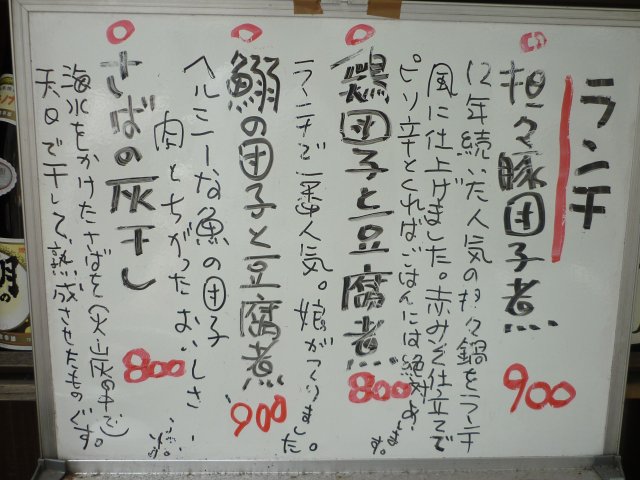 ランチ
担々豚団子煮 900
12年続いた人気の担々鍋をランチ
風に仕上げました。赤みそ仕立てで
ピリ辛とくればごはんには絶対
鶏団子と豆腐煮 800
ランチで一番人気。娘がつくりました。
鰯の団子と豆腐煮 900
ヘルシーな魚の団子
肉とちがったおいしさ
さばの灰干し 800
海水をかけたさばを(火山灰の中で)
天日で干して、熟成させたものです。